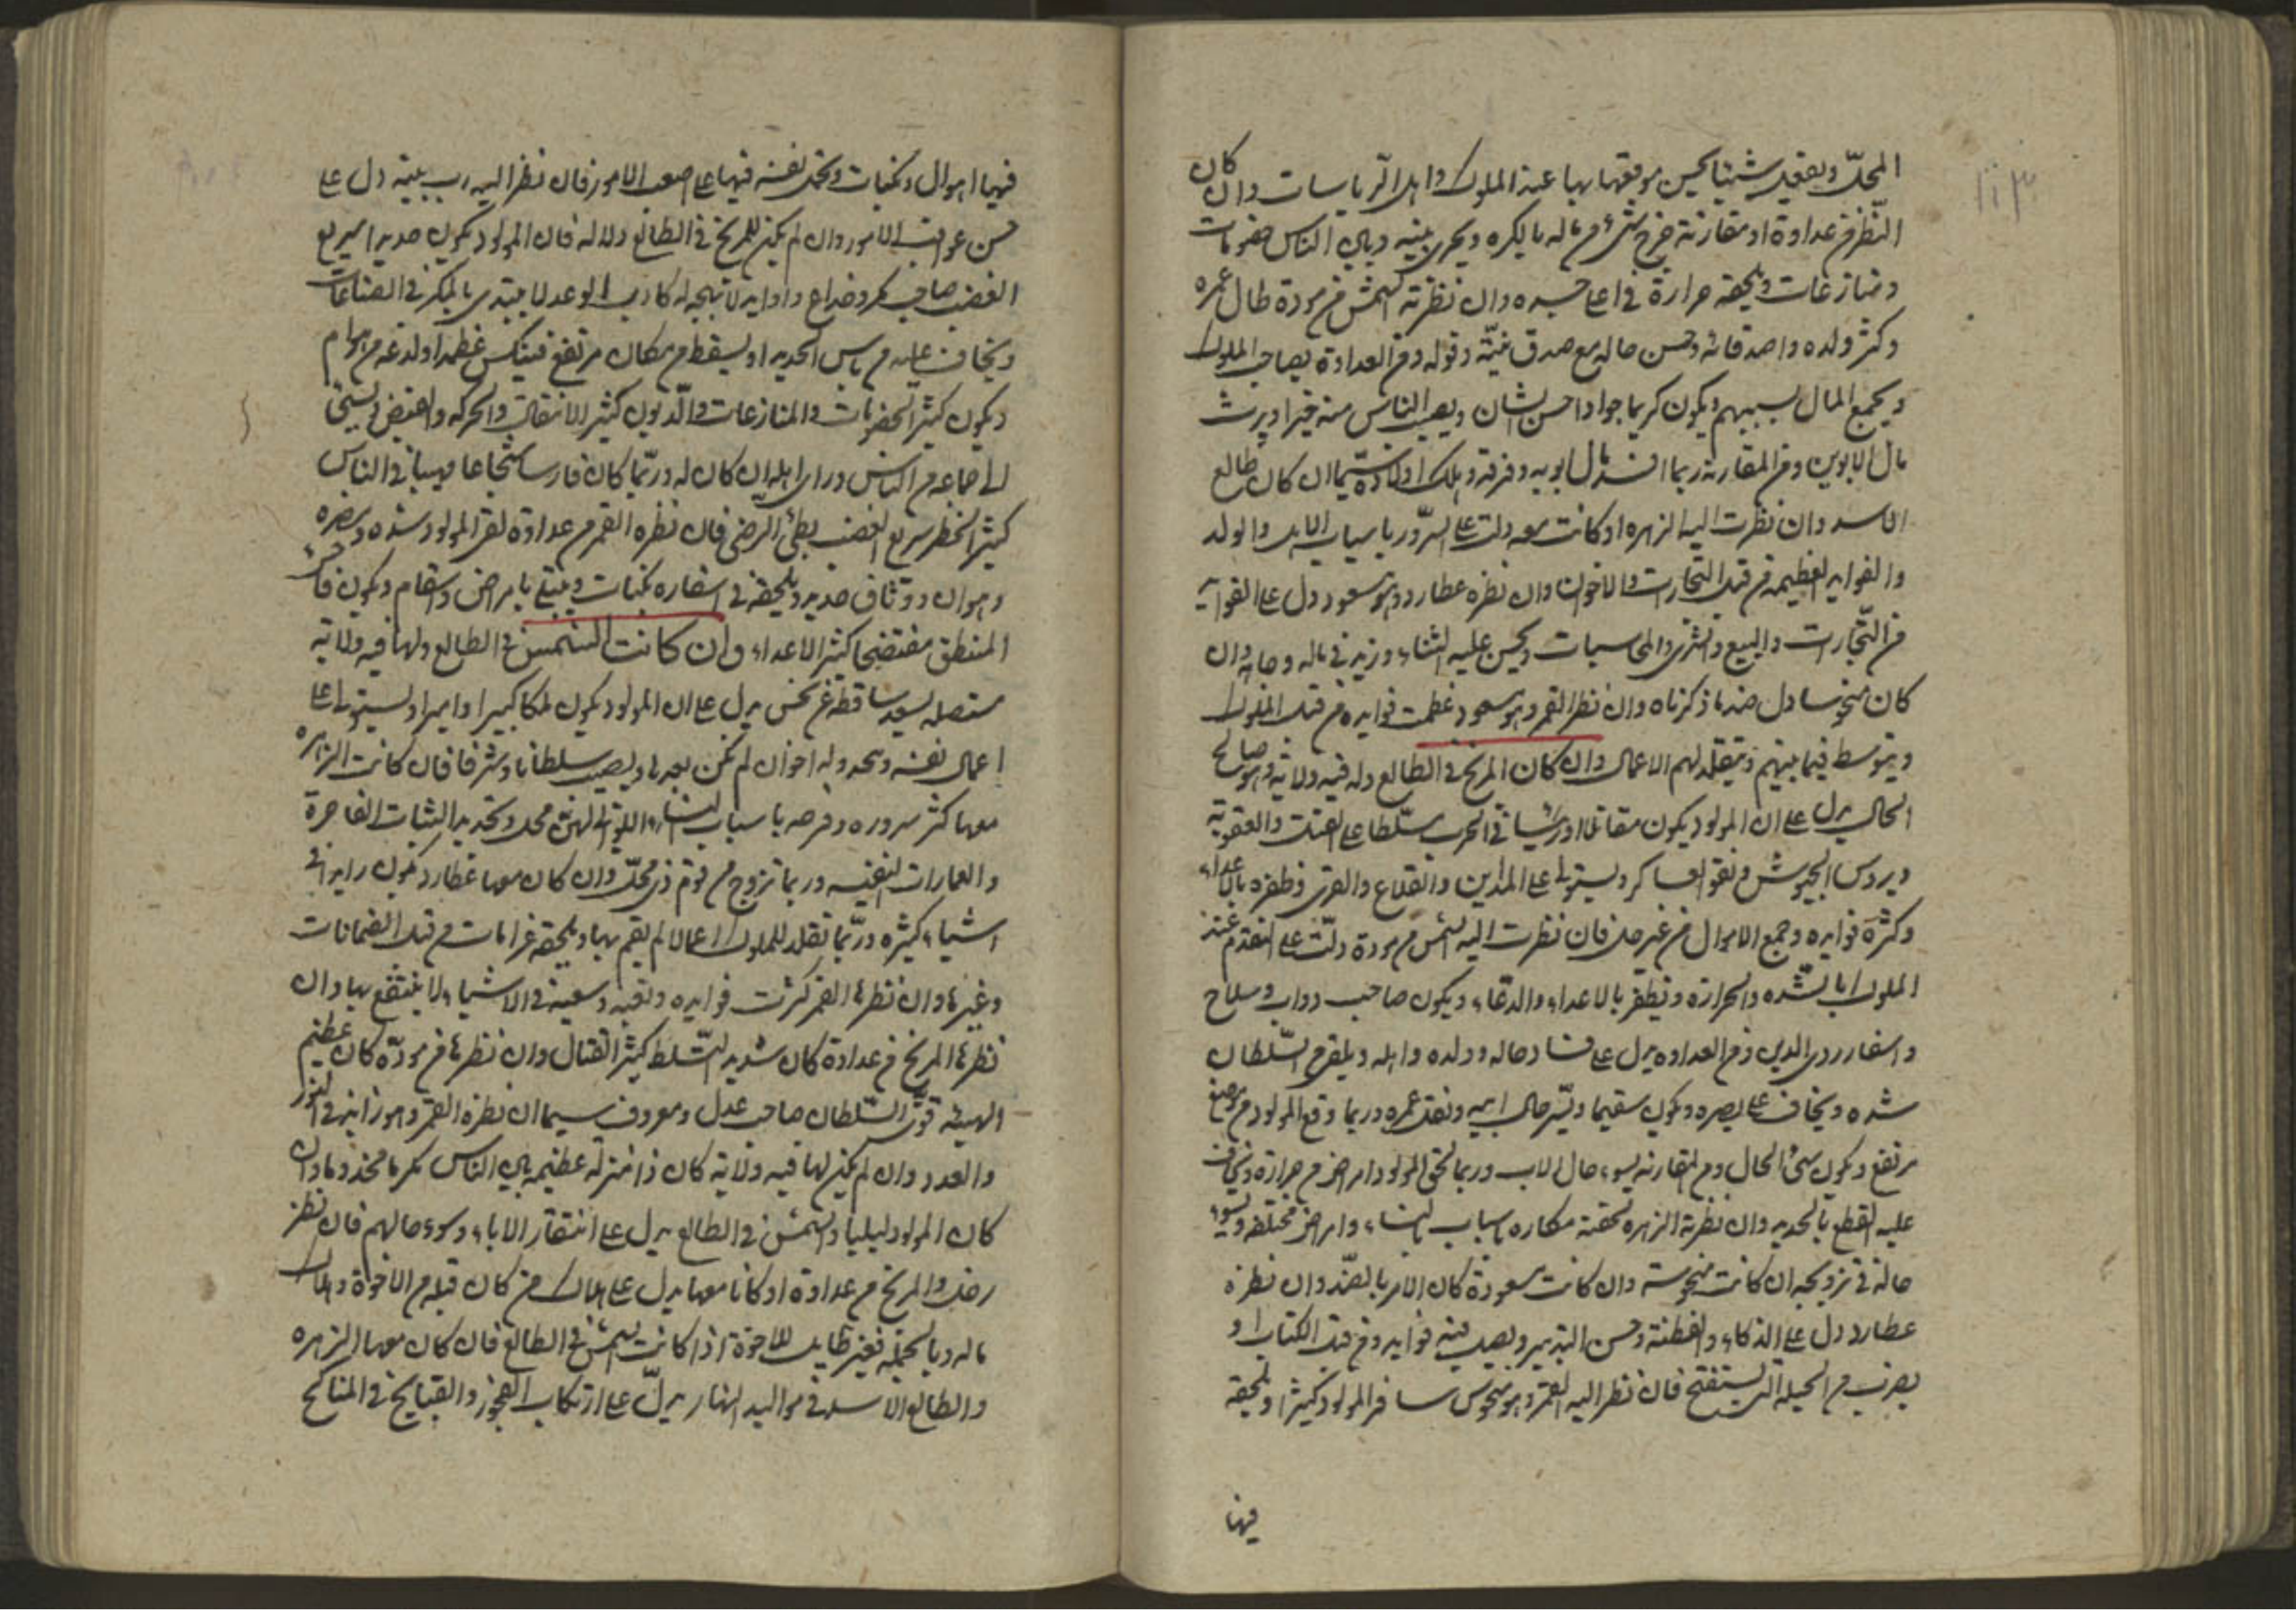 ١١٣
المحلّ ويفعل شيئا يحسن موقعها بها عند الملوك واهل الرياسات وان كان
النظر من عداوة او مقارنة خرج شيء من ماله بالكره ويجري بينه وبين الناس خصومات
ومنازعات ويلحقه حرارة في اعلى جسده وان نظرته الشمس من مودة طال عمره
وكثر ولده واصدقائه وحسن حاله مع صدق نيته وقوله ومن العداوة يصاحب الملوك
ويجمع المال بسببهم ويكون كريما جوادا حسن الشان ويصيب الناس منه خيرا ويرث
مال الابوين ومن المقارنة ربما افسد مال ابويه وفرقه وهلك اولاده سيّما ان كان طالع
الاسد وان نظرت اليه الزهره او كانت معه دلت على السرور باسباب الاهل والولد
والفوايد العظيمه من قبل التجارات والاخوان وان نظره عطارد وهو مسعود دل على الفوآيد
من التجارات والبيع والشرى والمحاسبات ويحسن عليه الثناء وزيد في ماله وجاهه وان
كان منحوسا دل ضد ما ذكرناه وان نظر القمر وهو مسعود عظمت فوايده من قبل الملوك
ويتوسط فيما بينهم ويتقلد لهم الاعمال وان كان المريخ في الطالع وله فيه ولاية وهو صالح
الحال يدل على ان المولود يكون مقاتلا ورئيسا في الحرب متسلطا على القتل والعقوبة
ويروس الجيوش ويقود العساكر ويستولي على المداين والقلاع والقرى وظفره بالاعداء
وكثرة فوايده وجمع الاموال من غير حل فان نظرت اليه الشمس من مودة دلّت على التقدم عند
الملوك بالشده والحرارة ويظفر بالاعداء والدعاء ويكون صاحب دواب وسلاح
واسفار ردى الدين ومن العداوه يدل على فساد حاله وولده واهله ويلقى من السلطان
شده ويخاف على بصره ويكون سقيما ويسر حال ابيه ونقد عمره وربما وقع المولود من موضع
مرتفع ويكون سيئ الحال ومن المقارنه يسوء حال الاب وربما لحق المولود امراض من حرارة ويخاف
عليه القطع بالحديد وان نظرته الزهره لحقته مكاره باسباب النساء وامراض مختلفه ويسوء
حاله في تزويجه ان كانت منحوسته وان كانت مسعودة كان الامر بالضد وان نظره
عطارد دل على الذكاء والفطنة وحسن التدبير ويصيب منه فوايد ومن قبل الكتاب او
يضرب من الحيله التي يستقبح فان نظر اليه القمر وهو منحوس سافر المولود كثيرا ويلحقه
فيها
فيها اهوال ونكبات ويحمل نفسه فيها على اصعب الامور فان نظر اليه رب بيته دل على
حسن عواقب الامور وان لم يكن للمريخ في الطالع دلاله فان المولود يكون حديدا سريع
الغضب صاحب مكر وخداع كاذب الوعد لما يبتدى بالمكر في الصناعات
ويخاف عليه من باس الحديد او يسقط من مكان مرتفع فينكسر عظمه او لدغه من هوام
ويكون كثير الخصومات والمنازعات والديون كثير الانتقال والحركه والغيض
الى جماعه من الناس وراى اهله ان كان له وربّما كان فارسا شجاعا مهيبا في الناس
كثير الخطر سريع الغضب بطئ الرضى فان نظره القمر من عداوة لقى المولود شده ومضره
وهوان ووثاق حديد ويلحقه في اسفاره نكبات ويبتلى بامراض واسقام ويكون فاحش
المنطق مفتضحا كثير الاعداء وان كانت الشمس في الطالع ولها فيه ولاية
متصله بسعد ساقطه عن نحس يدل على ان المولود يكون ملكا كبيرا واميرا ويستولى على
اعمال نفسه وله اخوان لم يكن بعد ويصيب سلطانا وشرفا فان كانت الزهره
معها كثر سروره وفرحه باسباب النساء واللواتى لهن محل وتجديد الثياب الفاخرة
والعمارات النفيسه وربما تزوج من قوم ذى محلّ وان كان معها عطارد يكون رايه في
اشياء كثيره وربّما تقلد للملوك اعمالا لم يقم بها ويلحقه غرامات من قبل الضمانات
وغيرها وان نظرها القمر كثرت فوايده وتعبه وسعيه في الاشياء ولا ينتفع بها وان
نظرها المريخ من عداوة كان شديد التسلط كثير القتال وان نظرها من مودّة كان عظيم
الهيبه قوىّ السلطان صاحب عدل ومعروف سيما ان نظره القمر وهو زايد في النور
والعدد وان لم يكن لها فيه ولاية كان ذا منزله عظيمه بين الناس مكرما مخدوما وان
كان المولود ليليا والشمس في الطالع يدل على افتقار الاباء وسوء حالهم فان نظر
زحل والمريخ من عداوة او كانا معها يدل على هلاك من كان قبله من الاخوة وهلاك
ماله وبالجمله فغير طايل للاخوة اذا كانت الشمس في الطالع فان كان معها الزهره
والطالع الاسد في مواليد النهار يدلّ على ارتكاب الفجور والقبايح في المناكح